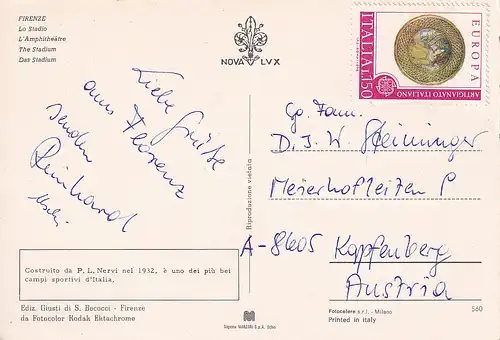 FIRENZE
Lo Stadio
L'Amphithéâtre
The Stadium
Das Stadium
NOVA LVX
EUROPA
ARTIGIANATO ITALIANO
ITALIA L.150
Liebe Grüße
aus Florenz
senden
Reinhardt
Riproduzione vietata
D. I. W. Steininger
Meierhofleiten
A-8605 Kapfenberg
Austria
Costruito da P. L. Nervi nel 1932, è uno dei più bei
campi sportivi d'Italia.
Ediz. Giusti di S. Becocci - Firenze
da Fotocolor Kodak Ektachrome
Fotocelere s.r.l. - Milano
Printed in Italy
560